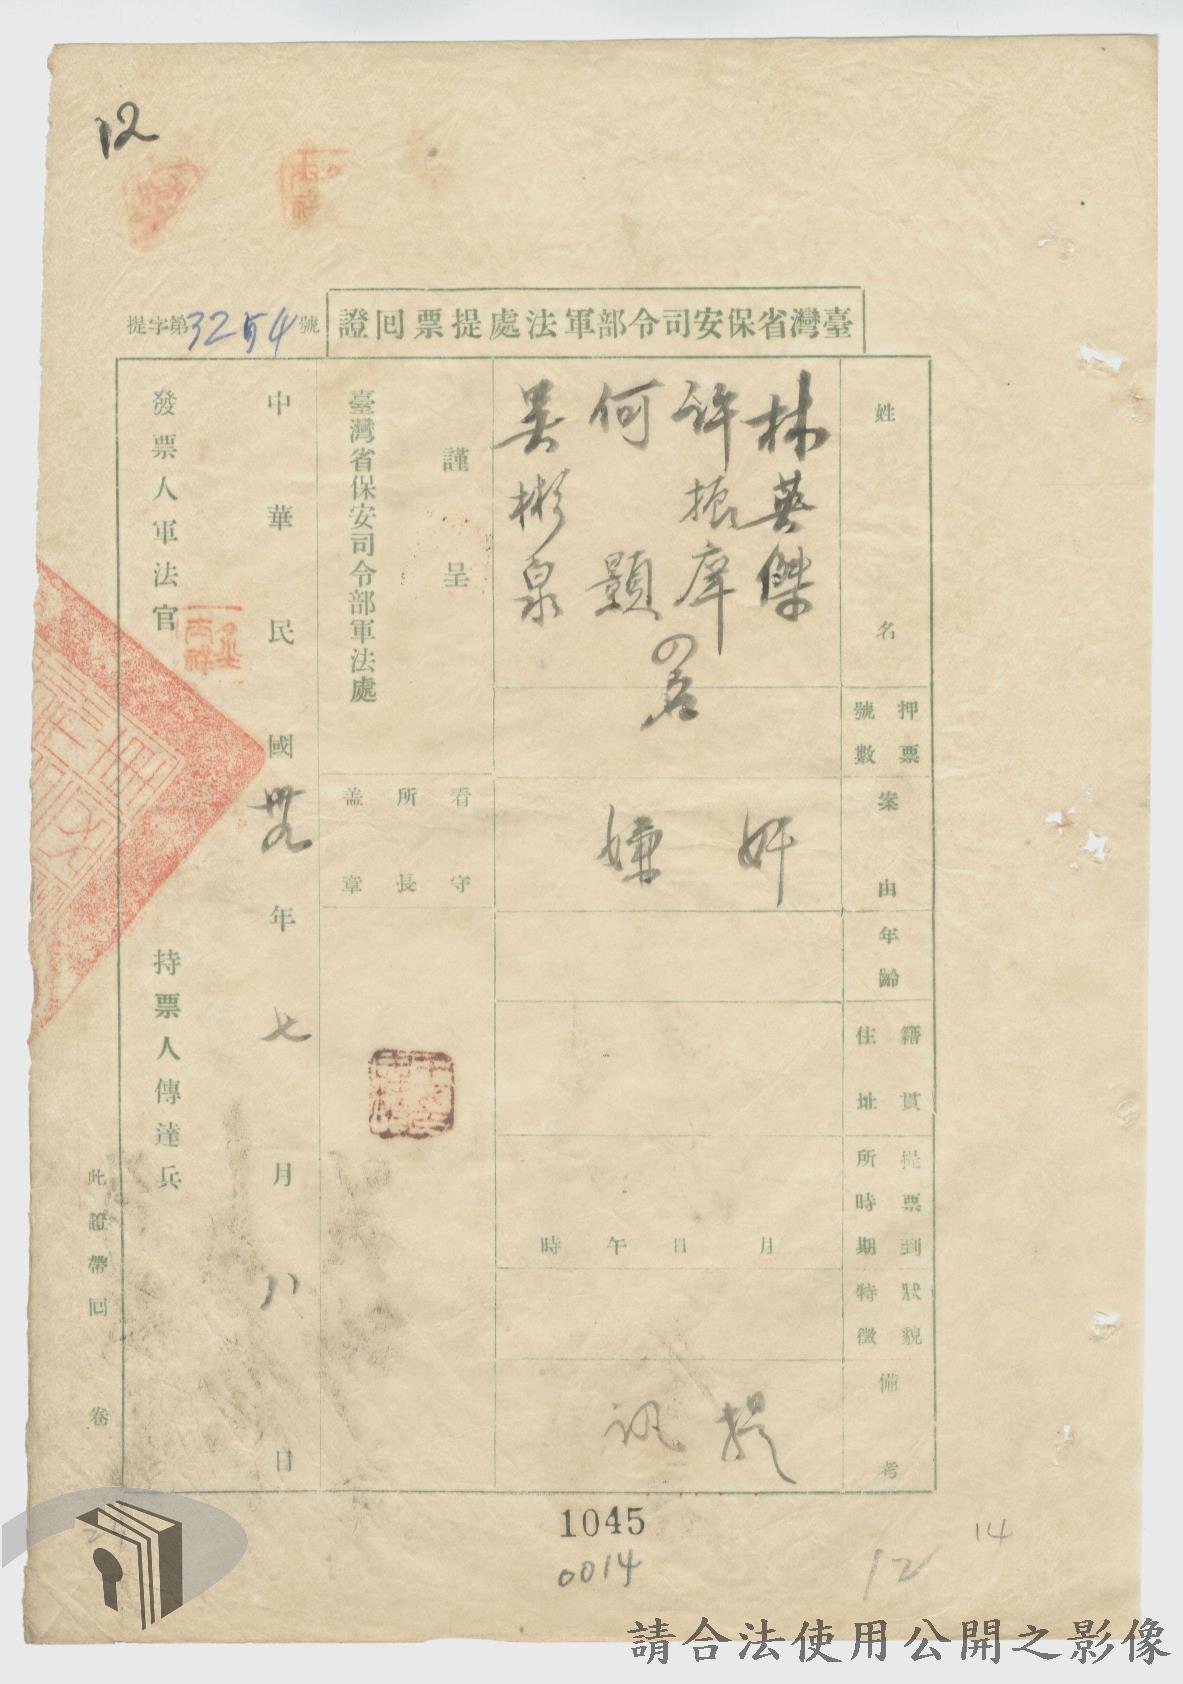 12
臺灣省保安司令部軍法處提票回證
提字第3254號
姓名
林英傑
許振庠
何顯
吳彬泉
四名
押票號數
案由
奸嫌
年齡
籍貫住址
提票到所時期
月日午時
狀貌特徵
備考
提訊
謹呈
臺灣省保安司令部軍法處
看守所長蓋章
中華民國卅九年七月八日
發票人軍法官
持票人傳達兵
此證帶回卷
1045
0014
12
14
請合法使用公開之影像